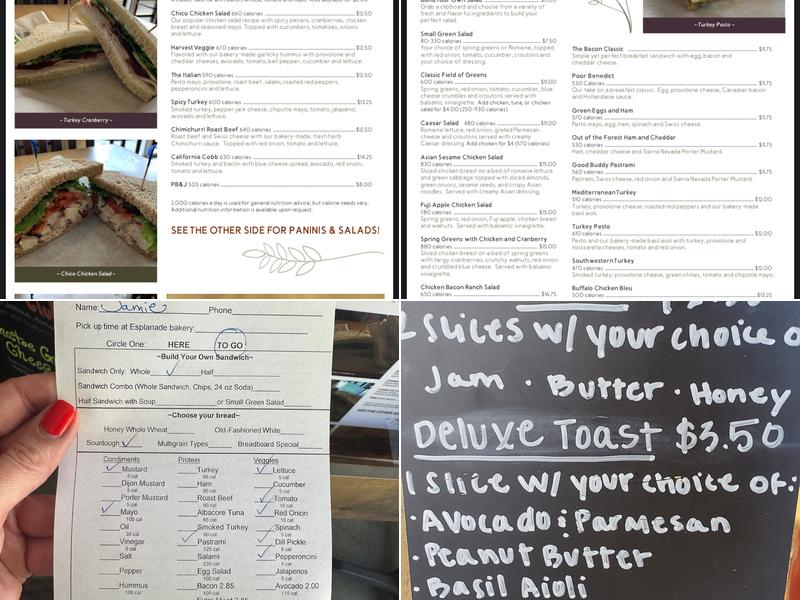 Chico Chicken Salad 660 calories $12.50
Our popular chicken salad recipe with spicy pecans, cranberries, chicken
breast and seasoned mayo. Topped with cucumbers, tomatoes, onions
and lettuce.
Harvest Veggie 670 calories $12.50
Flavored with our bakery-made garlicky hummus with provolone and
cheddar cheeses, avocado, tomato, bell pepper, cucumber and lettuce.
The Italian 590 calories $12.50
Pesto mayo, provolone, roast beef, salami, roasted red peppers,
pepperoncini & lettuce.
Spicy Turkey 600 calories $13.25
Smoked turkey, pepper jack cheese, chipotle mayo, tomato, jalapeno,
avocado and lettuce.
Chimichurri Roast Beef 640 calories $12.50
Roast beef and Swiss cheese with our bakery-made, fresh herb
Chimichurri sauce. Topped with red onion, tomato and lettuce.
California Cobb 630 calories $14.25
Smoked turkey and bacon with blue cheese spread, avocado, red onion,
tomato and lettuce.
PB&J 505 calories $8.00
2,000 calories a day is used for general nutrition advice, but calorie needs vary.
Additional nutrition information is available upon request.
SEE THE OTHER SIDE FOR PANINIS & SALADS!
~ Turkey Cranberry ~
~ Chico Chicken Salad ~
Grab a clipboard and choose from a variety of
fresh and flavorful ingredients to build your
perfect salad.
Small Green Salad
80-330 calories $7.50
Your choice of spring greens or Romaine, topped
with red onion, tomato, cucumber, croutons and
your choice of dressing.
Classic Field of Greens
600 calories $11.00
Spring greens, red onion, tomato, cucumber, blue
cheese crumbles and croutons served with
balsamic vinaigrette. Add chicken, tuna, or chicken
salad for $4.00 (250-930 calories)
Caesar Salad 480 calories $11.00
Romaine lettuce, red onion, grated Parmesan
cheese and croutons served with creamy
Caesar dressing. Add chicken for $4 (570 calories)
Asian Sesame Chicken Salad
830 calories $15.00
Sliced chicken breast on a bed of romaine lettuce
and green cabbage topped with sliced almonds,
green onions, sesame seeds, and crispy Asian
noodles. Served with creamy Asian dressing.
Fuji Apple Chicken Salad
780 calories $15.00
Spring greens, red onion, Fuji apple, chicken breast
and walnuts. Served with balsamic vinaigrette.
Spring Greens with Chicken and Cranberry
880 calories $15.00
Sliced chicken breast on a bed of spring greens
with tangy cranberries, crunchy walnuts, red onion
and crumbled blue cheese. Served with balsamic
vinaigrette.
Chicken Bacon Ranch Salad
650 calories $16.75
~ Turkey Pesto ~
The Bacon Classic
530 Calories $11.75
Simple yet perfect breakfast sandwich with egg, bacon and
cheddar cheese.
Poor Benedict
530 Calories $11.75
Our take on a breakfast classic. Egg, provolone cheese, Canadian bacon
and Hollandaise sauce.
Green Eggs and Ham
570 calories $11.75
Pesto mayo, egg, ham, spinach and Swiss cheese.
Out of the Forest Ham and Cheddar
530 calories $11.75
Ham, cheddar cheese and Sierra Nevada Porter Mustard.
Good Buddy Pastrami
560 calories $11.75
Pastrami, Swiss cheese, red onion and Sierra Nevada Porter Mustard.
Mediterranean Turkey
510 calories $12.00
Turkey, provolone cheese, roasted red peppers and our bakery-made
basil aioli.
Turkey Pesto
610 calories $12.00
Pesto and our bakery-made basil aioli with turkey, provolone and
mozzarella cheeses, tomato and red onion.
Southwestern Turkey
470 calories $12.00
Smoked turkey, provolone cheese, green chilies, tomato and chipotle mayo.
Buffalo Chicken Bleu
500 calories $13.25
Name: Jamie Phone
Pick up time at Esplanade bakery:
Circle One: HERE TO GO
~Build Your Own Sandwich~
Sandwich Only: Whole Half
Sandwich Combo (Whole Sandwich, Chips, 24 oz Soda)
Half Sandwich with Soup or Small Green Salad
~Choose your bread~
Honey Whole Wheat Old-Fashioned White
Sourdough Multigrain Types Breadboard Special
Condiments Protein Veggies
Mustard Turkey Lettuce
Dijon Mustard Ham Cucumber
Porter Mustard Roast Beef Tomato
Mayo Albacore Tuna Red Onion
Oil Smoked Turkey Spinach
Vinegar Pastrami Dill Pickle
Salt Salami Pepperoncini
Pepper Egg Salad Jalapenos
Hummus Bacon 2.85 Avocado 2.00
2 Slices w/ your choice o
Jam · Butter · Honey
Deluxe Toast $3.50
1 Slice w/ your choice of:
· Avocado & Parmesan
· Peanut Butter
· Basil Aioli